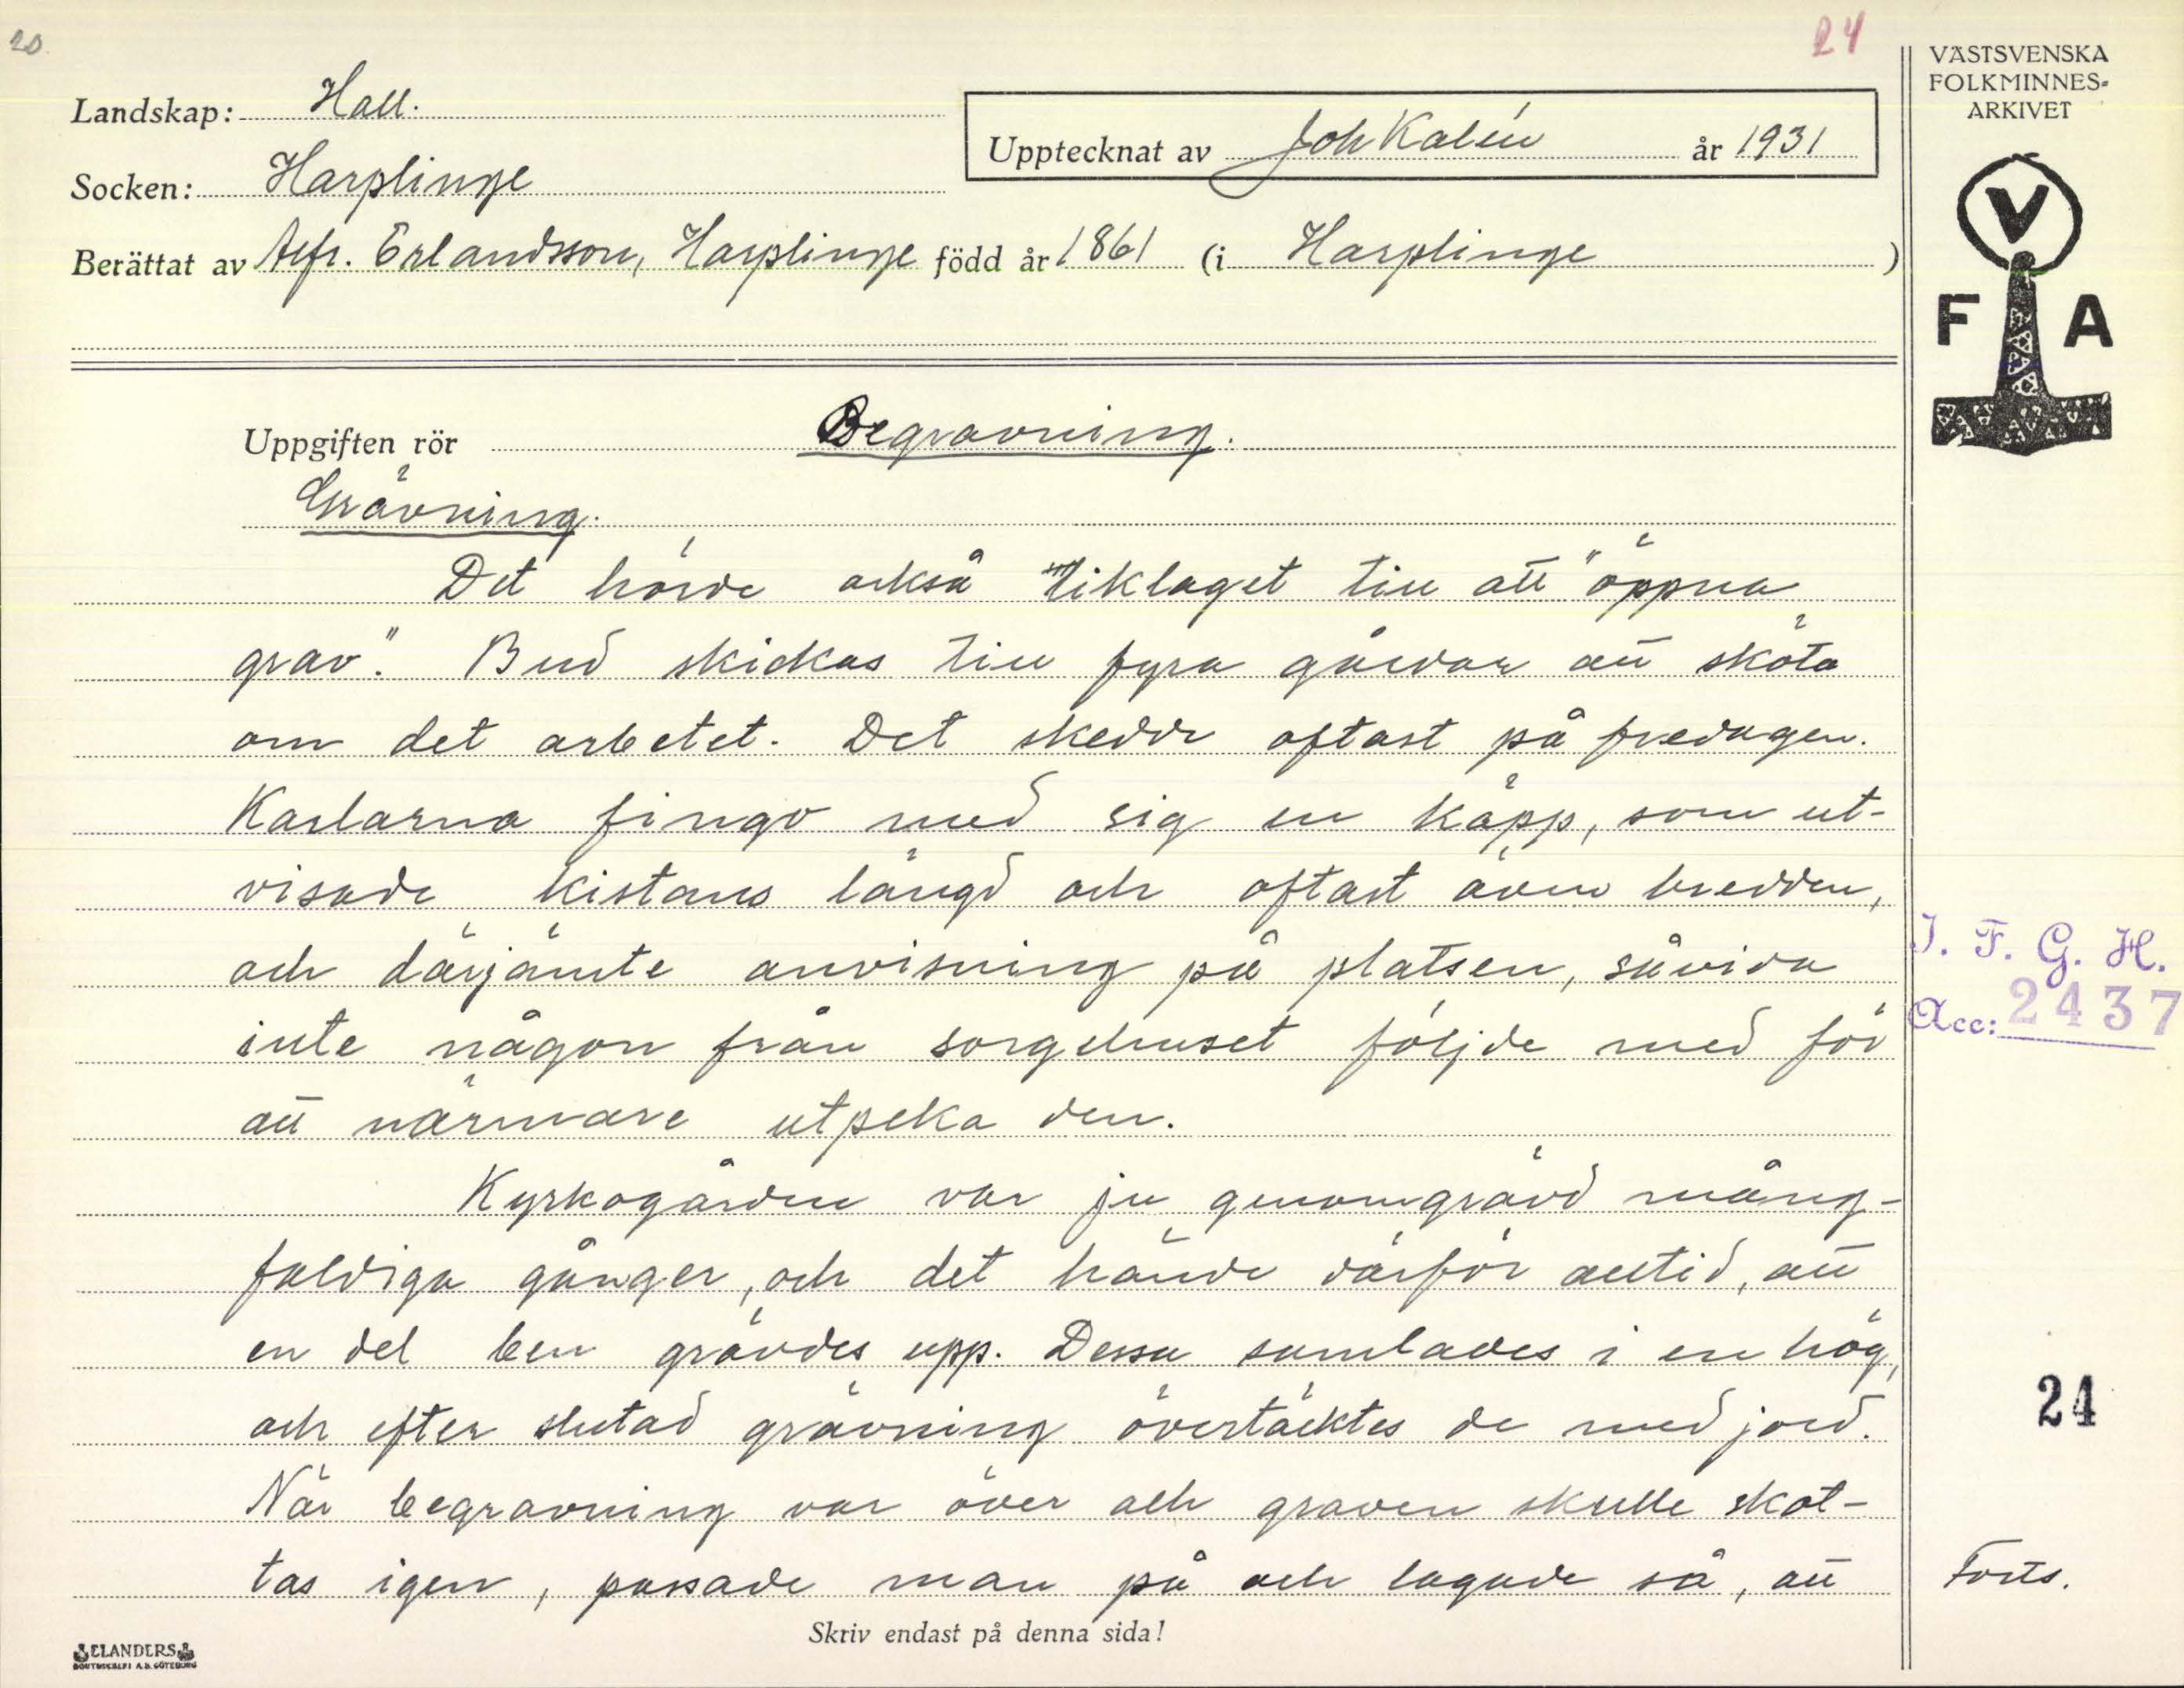 20.
24
Landskap: Hall.
Upptecknat av Joh Kalén år 1931
Socken: Harplinge
Berättat av Alfr. Erlandsson, Harplinge född år 1861 (i Harplinge )
VÄSTSVENSKA
FOLKMINNES-
ARKIVET
V
F A
Uppgiften rör Begravning.
Grävning.
Det hörde också liklaget till att "öppna
grav". Bud skickas till fyra gårdar att sköta
om det arbetet. Det skedde oftast på fredagen.
Karlarna fingo med sig en käpp, som ut-
visade kistans längd och oftast även bredden,
och därjämte anvisning på platsen, såvida
inte någon från sorgehuset följde med för
att närmare utpeka den.
Kyrkogården var ju genomgrävd mång-
faldiga gånger, och det hände därför alltid, att
en del ben grävdes upp. Dessa samlades i en hög,
och efter slutad grävning övertäcktes de med jord.
När begravning var över och graven skulle skot-
tas igen, passade man på och lagade så, att
I. F. G. H.
Acc: 2437
24
Forts.
Skriv endast på denna sida!
ELANDERS
BOKTRYCKERI A.B. GÖTEBORG